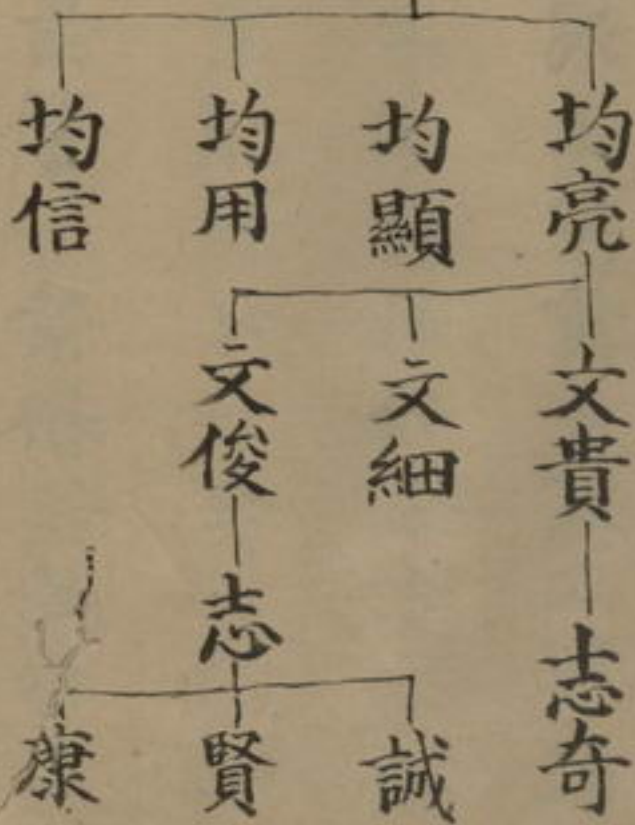 均亮
均顯
均用
均信
文貴
文細
文俊
志奇
志
誠
賢
康